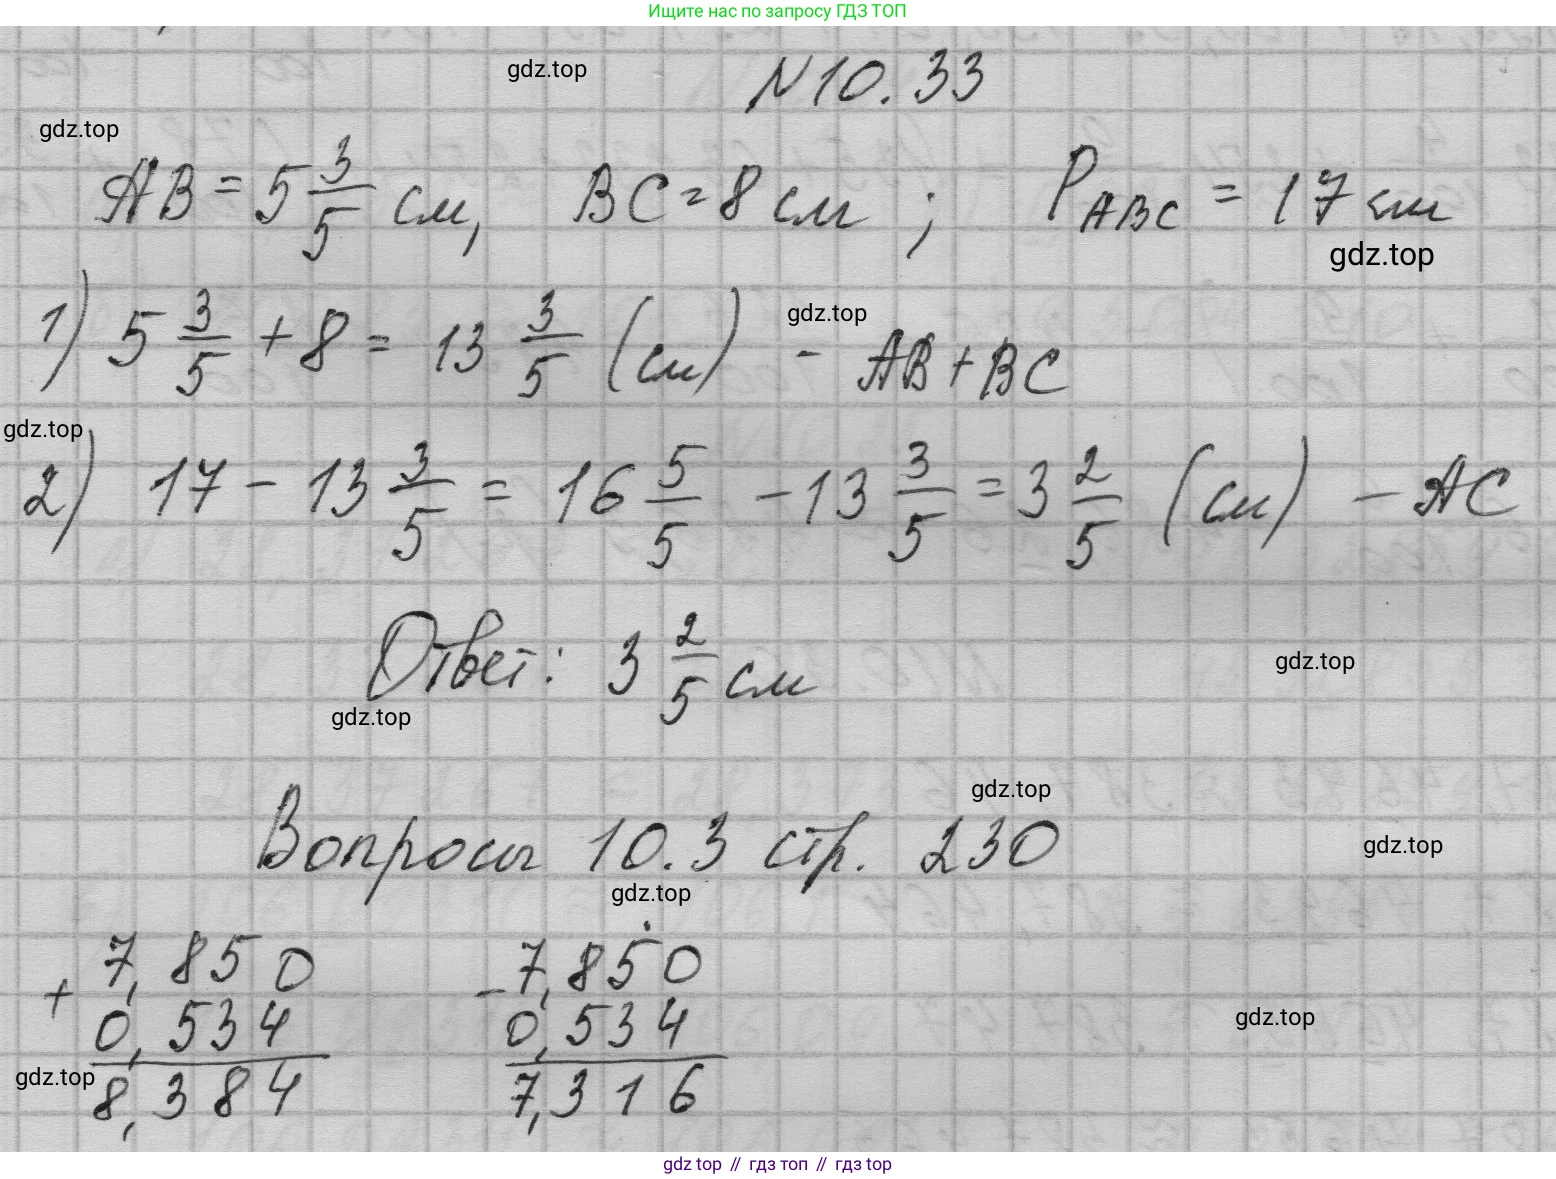 Ищите нас по запросу ГДЗ ТОП
N10.33
gdz.top
gdz.top
AB = 5 3/5 см, BC = 8 см ; P ABC = 17 см
gdz.top
1) 5 3/5 + 8 = 13 3/5 (см) - AB + BC
gdz.top
gdz.top
2) 17 - 13 3/5 = 16 5/5 - 13 3/5 = 3 2/5 (см) - AC
Ответ: 3 2/5 см
gdz.top
gdz.top
gdz.top
Вопросы 10.3 стр. 230
gdz.top
gdz.top
+ 7,850 - 7,850
0,534 0,534
gdz.top
8,384 7,316
gdz.top
gdz top // гдз топ // гдз top